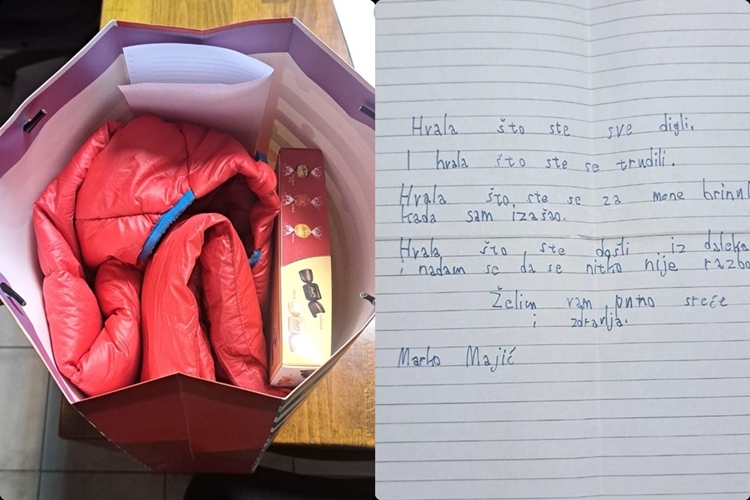 Hvala što ste svе digli.
I hvala što ste se trudili.
Hvala što ste se za mene brinu
kada sam izašao.
Hvala što ste došli iz daleka
i nadam se da se nitko nije razbo
Želim vam puno sreće
i zdravlja.
Marko Majić